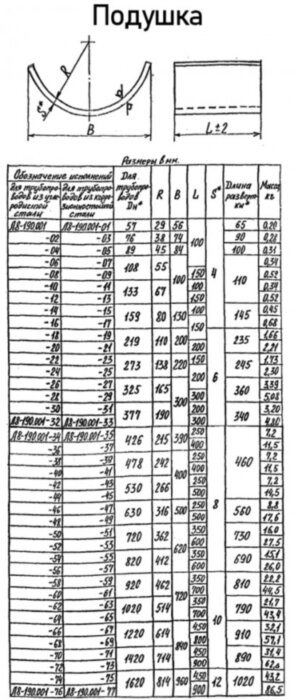 Подушка
R
S*
B
L±2
Размеры в мм.
Обозначение исполнений
для трубопро-
водов из угле-
родистой
стали
для трубопро-
стали
Для
трубопро-
водов
Dн*
R
B
L
S*
Длина
разверт-
ки*
Масса,
кг
Л8-190.001 Л8-190.001-01 57 29 56 100 4 65 0,20
-02 -03 76 38 74 90 0,28
-04 -05 89 45 84 100 0,31
-06 -07 108 55 100 110 0,34
-08 -09 150 0,52
-10 -11 133 67 100 0,34
-12 -13 150 0,52
-14 -15 159 80 130 100 145 0,45
-16 -17 150 0,68
-18 -19 219 110 200 6 235 1,66
-20 -21 200 2,21
-22 -23 273 138 220 150 245 1,73
-24 -25 200 2,30
-26 -27 325 165 300 200 360 3,39
-28 -29 300 5,08
-30 -31 377 190 200 340 3,20
Л8-190.001-32 Л8-190.001-33 300 4,80
Л8-190.001-34 Л8-190.001-35 426 215 390 250 8 460 7,2
-36 -37 400 11,5
-38 -39 478 242 400 250 7,2
-40 -41 400 11,5
-42 -43 530 266 250 7,2
-44 -45 500 14,5
-46 -47 630 316 500 250 560 8,8
-48 -49 500 17,6
-50 -51 720 362 620 350 730 16,0
-52 -53 600 27,5
-54 -55 820 412 350 690 15,1
-56 -57 600 26,0
-58 -59 920 462 720 350 10 810 22,2
-60 -61 700 44,5
-62 -63 1020 514 350 790 21,7
-64 -65 700 43,4
-66 -67 1220 614 840 450 910 32,1
-68 -69 800 57,1
-70 -71 1420 714 450 890 31,4
-72 -73 900 62,8
-74 -75 1620 814 960 450 12 1020 43,2
Л8-190.001-76 Л8-190.001-77 900 86,5